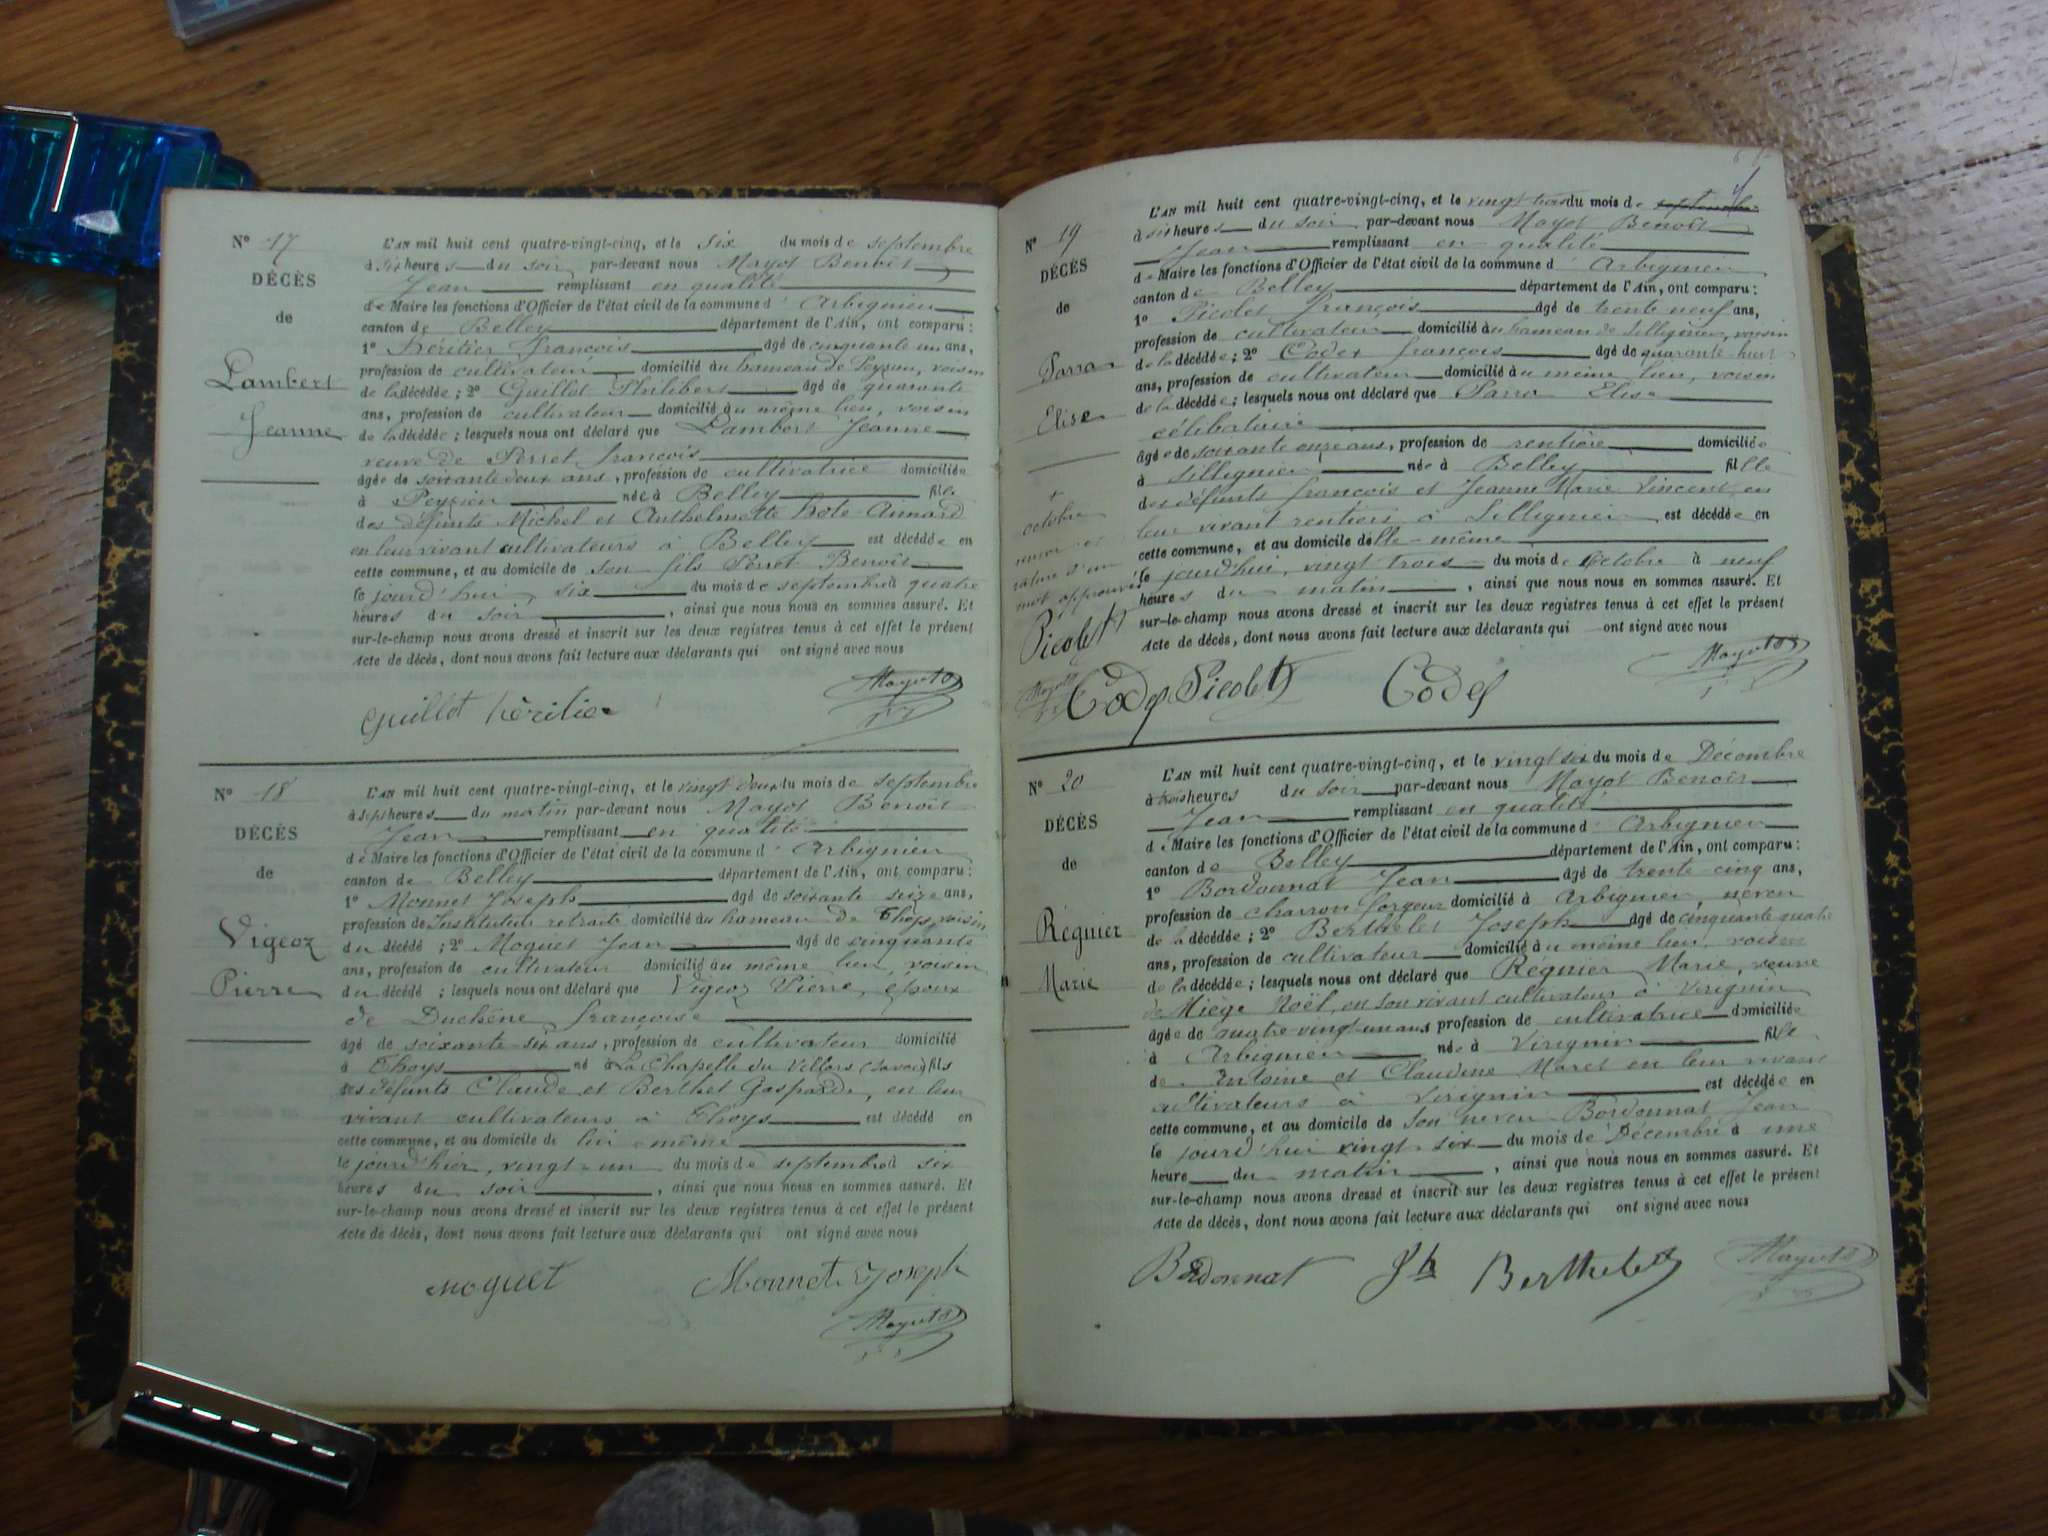 N° 17
DÉCÈS
de
Lambert
Jeanne
L'AN mil huit cent quatre-vingt-cinq, et le six du mois de septembre
à six heures du soir par-devant nous Mayot Benoît
Jean remplissant en qualité
de Maire les fonctions d'Officier de l'état civil de la commune d'Arbignieu
canton de Belley département de l'Ain, ont comparu :
1° Héritier françois âgé de cinquante un ans,
profession de cultivateur domicilié au hameau de Peyzieu, voisin
de la décédée ; 2° Guillot Philibert âgé de quarante
ans, profession de cultivateur domicilié au même lieu, voisin
de la décédée ; lesquels nous ont déclaré que Lambert Jeanne
veuve de Perret françois
âgée de soixante deux ans, profession de cultivatrice domiciliée
à Peyzieu née à Belley fille
des défunts Michel et Anthelmette Hote-Aimard
en leur vivant cultivateurs à Belley est décédée en
cette commune, et au domicile de son fils Perret Benoît
le jourd'hui, six du mois de septembre à quatre
heures du soir, ainsi que nous nous en sommes assuré. Et
sur-le-champ nous avons dressé et inscrit sur les deux registres tenus à cet effet le présent
Acte de décès, dont nous avons fait lecture aux déclarants qui ont signé avec nous
Guillot héritier Mayot B
N° 18
DÉCÈS
de
Vigeoz
Pierre
L'AN mil huit cent quatre-vingt-cinq, et le vingt deux du mois de septembre
à sept heures du matin par-devant nous Mayot Benoît
Jean remplissant en qualité
de Maire les fonctions d'Officier de l'état civil de la commune d'Arbignieu
canton de Belley département de l'Ain, ont comparu :
1° Monnet Joseph âgé de soixante seize ans,
profession de Instituteur retraité domicilié au hameau de Thoys, voisin
du décédé ; 2° Moguet Jean âgé de cinquante
ans, profession de cultivateur domicilié au même lieu, voisin
du décédé ; lesquels nous ont déclaré que Vigeoz Pierre, époux
de Duchêne françoise
âgé de soixante-six ans, profession de cultivateur domicilié
à Thoys né à La Chapelle du Villars (Savoie) fils
des défunts Claude et Berthet Gasparde, en leur
vivant cultivateurs à Thoys est décédé en
cette commune, et au domicile de lui-même
le jourd'hier, vingt-un du mois de septembre à six
heures du soir, ainsi que nous nous en sommes assuré. Et
sur-le-champ nous avons dressé et inscrit sur les deux registres tenus à cet effet le présent
Acte de décès, dont nous avons fait lecture aux déclarants qui ont signé avec nous
Moguet Monnet Joseph
Mayot B
N° 19
DÉCÈS
de
Parra
Elise
octobre
rature d'un
mot approuvé
Picolet
L'AN mil huit cent quatre-vingt-cinq, et le vingt trois du mois de septembre
à six heures du soir par-devant nous Mayot Benoît
Jean remplissant en qualité
de Maire les fonctions d'Officier de l'état civil de la commune d'Arbignieu
canton de Belley département de l'Ain, ont comparu :
1° Picolet françois âgé de trente neuf ans,
profession de cultivateur domicilié au hameau de Sillignieu, voisin
de la décédée ; 2° Codex françois âgé de quarante huit
ans, profession de cultivateur domicilié au même lieu, voisin
de la décédée ; lesquels nous ont déclaré que Parra Elise
célibataire
âgée de soixante onze ans, profession de rentière domiciliée
à Sillignieu née à Belley fille
des défunts françois et Jeanne Marie Vincent, en
leur vivant rentiers à Sillignieu est décédée en
cette commune, et au domicile d'elle-même
le jourd'hui, vingt trois du mois de Octobre à neuf
heures du matin, ainsi que nous nous en sommes assuré. Et
sur-le-champ nous avons dressé et inscrit sur les deux registres tenus à cet effet le présent
Acte de décès, dont nous avons fait lecture aux déclarants qui ont signé avec nous
Picolet Mayot B
N° 20
DÉCÈS
de
Régnier
Marie
L'AN mil huit cent quatre-vingt-cinq, et le vingt six du mois de Décembre
à trois heures du soir par-devant nous Mayot Benoît
Jean remplissant en qualité
de Maire les fonctions d'Officier de l'état civil de la commune d'Arbignieu
canton de Belley département de l'Ain, ont comparu :
1° Bordonnat Jean âgé de trente-cinq ans,
profession de charron forgeur domicilié à Arbignieu, neveu
de la décédée ; 2° Berthelet Joseph âgé de cinquante quatre
ans, profession de cultivateur domicilié au même lieu, voisin
de la décédée ; lesquels nous ont déclaré que Régnier Marie, veuve
de Miège Noël, en son vivant cultivateur à Virignin
âgée de quatre-vingt-un ans, profession de cultivatrice domiciliée
à Arbignieu née à Virignin fille
de Antoine et Claudine Maret en leur vivant
cultivateurs à Virignin est décédée en
cette commune, et au domicile de son neveu Bordonnat Jean
le jourd'hui vingt-six du mois de Décembre à une
heure du matin, ainsi que nous nous en sommes assuré. Et
sur-le-champ nous avons dressé et inscrit sur les deux registres tenus à cet effet le présent
Acte de décès, dont nous avons fait lecture aux déclarants qui ont signé avec nous
Bordonnat Jh Berthelet Mayot B